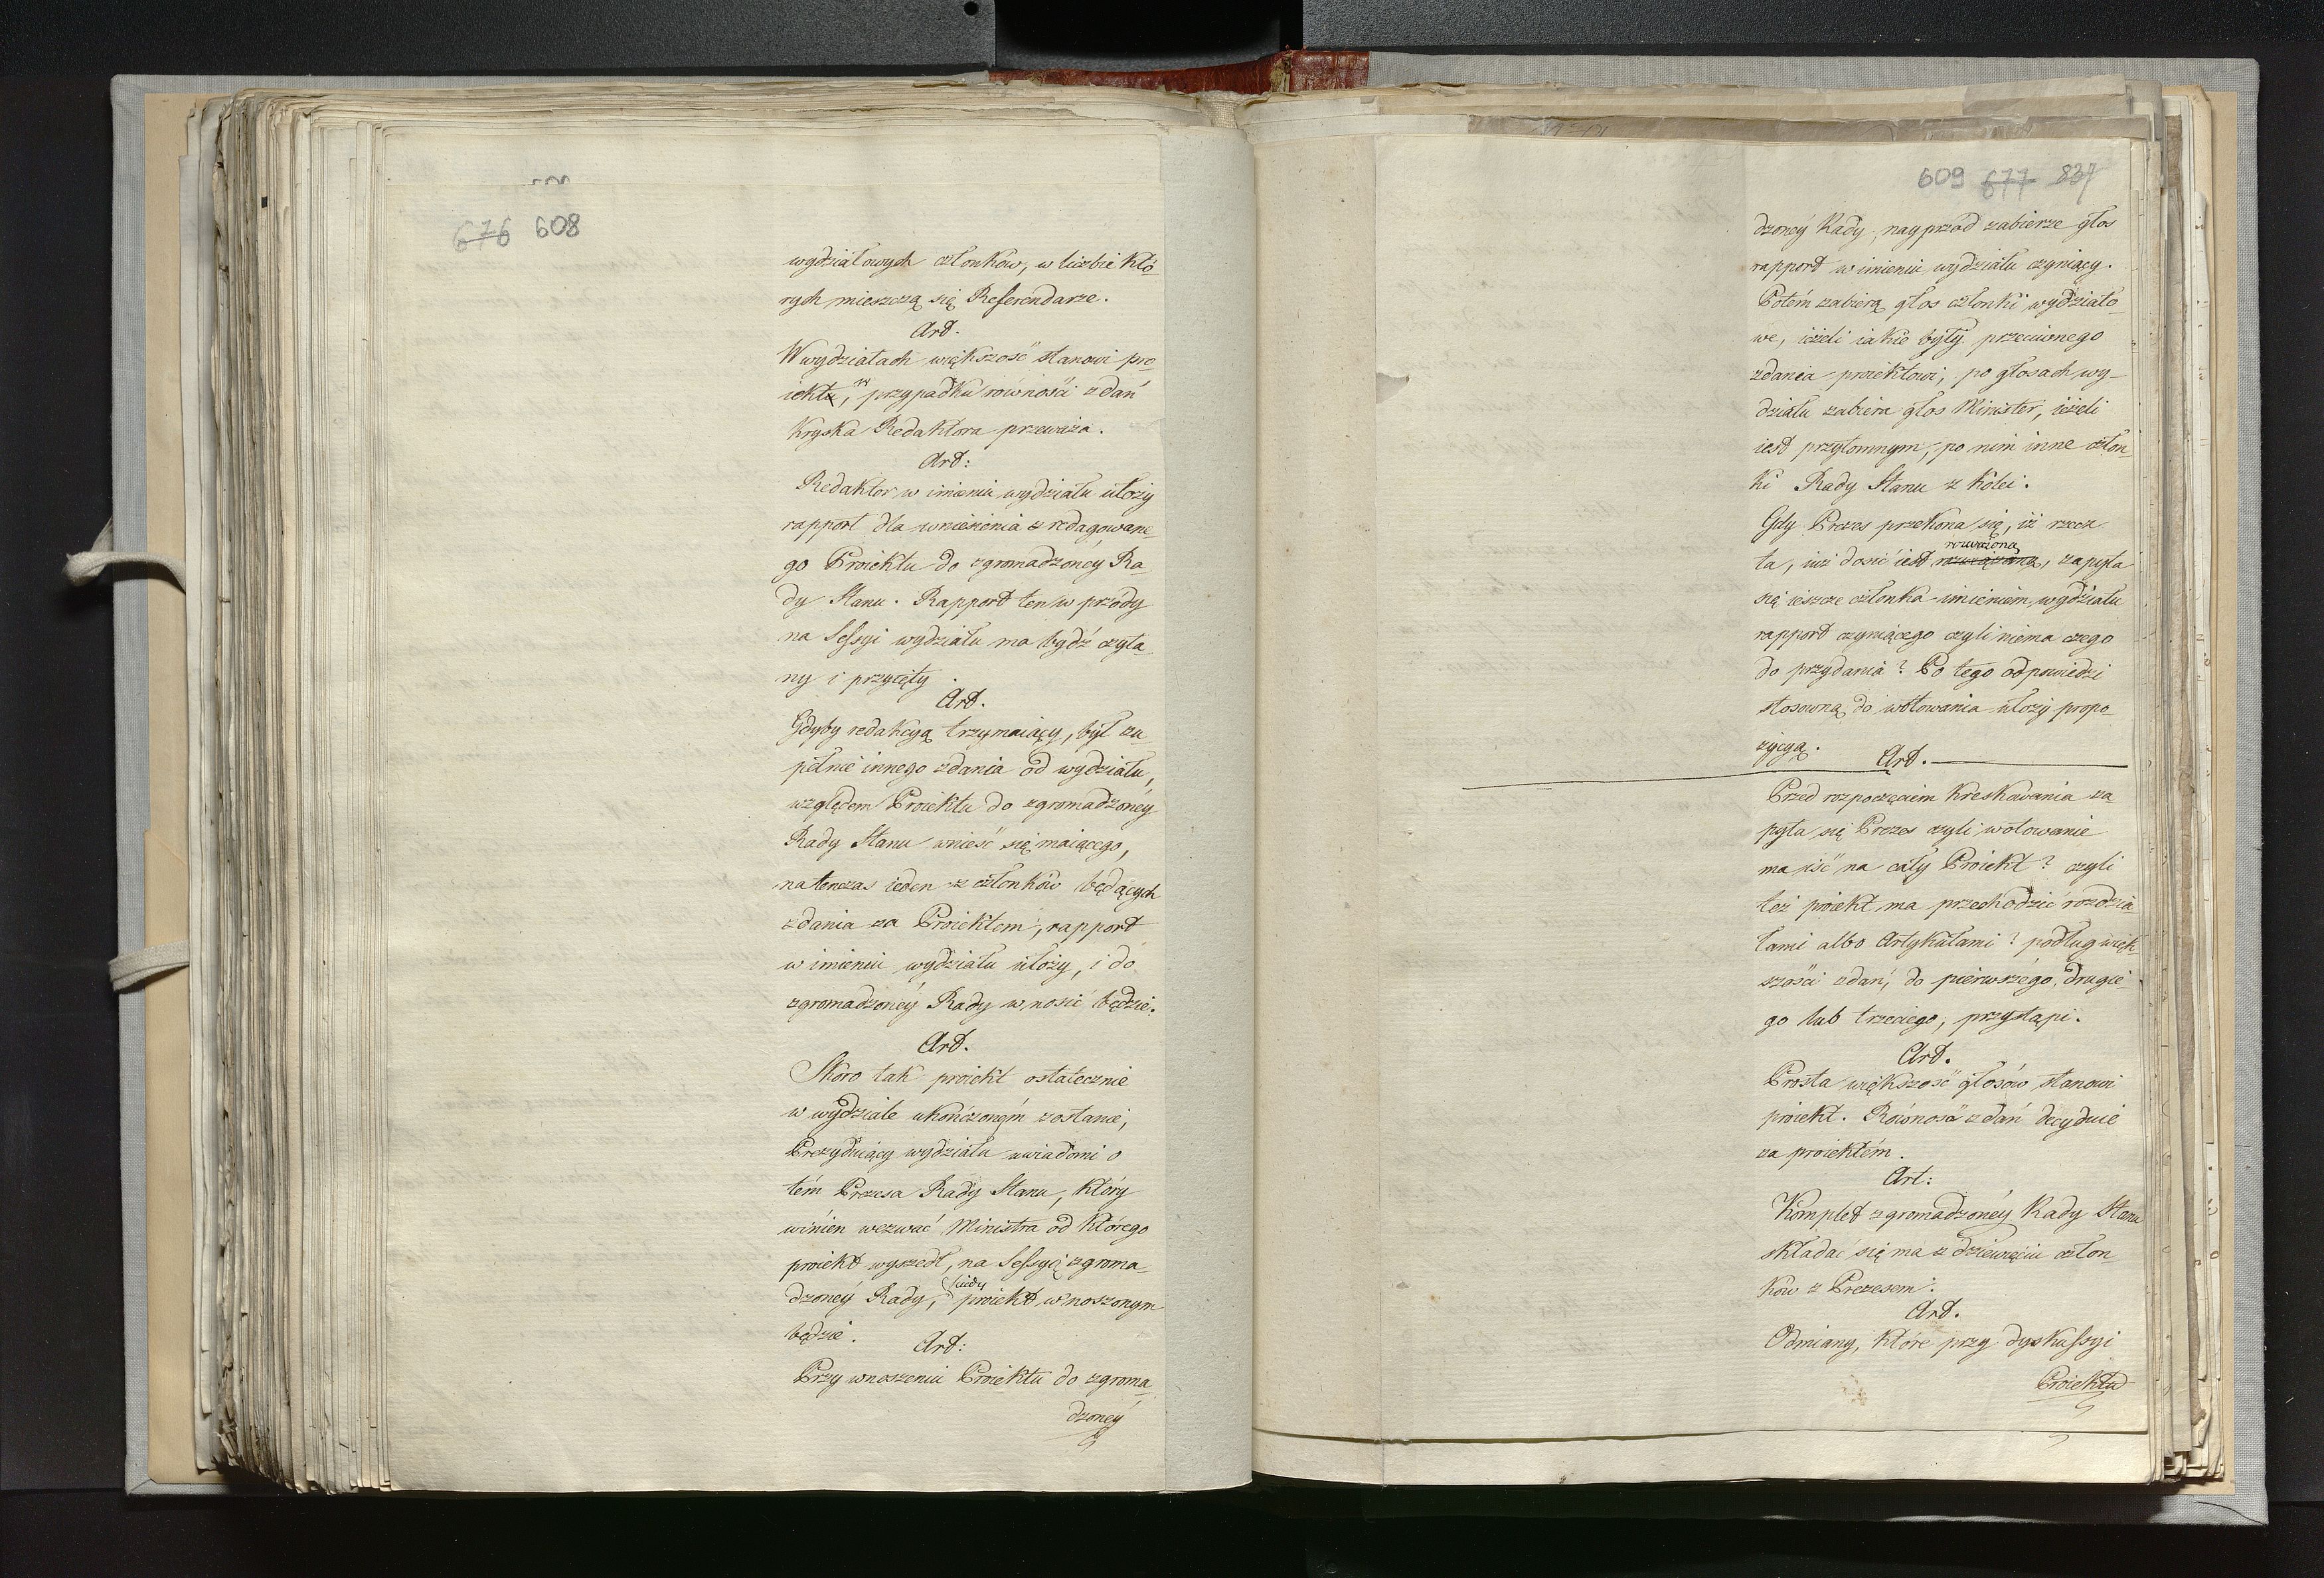 676 608
wydziałowych członków, w liczbie któ-
rych mieszczą się Referendarze.
Art.
W wydziałach większość stanowi pro-
iektu, w przypadku równości zdań
Kryska Redaktora przeważa.
Art:
Redaktor w imieniu wydziału ułoży
rapport dla wniesienia zredagowane-
go Proiektu do zgromadzoney Ra-
dy Stanu. Rapport ten w przódy
na Sessyi wydziału ma bydź czyta-
ny i przyięty.
Art.
Gdyby redakcyą trzymaiący, był zu-
pełnie innego zdania od wydziału,
względem Proiektu do zgromadzoney
Rady Stanu wnieść się maiącego,
natenczas ieden z członków będących
zdania za Proiektem, rapport
w imieniu wydziału ułoży, i do
zgromadzonéy Rady wnosić będzie.
Art.
Skoro tak proiekt ostatecznie
w wydziale ukończonym zostanie,
Prezyduiący wydziału uwiadomi o
tém Prezesa Rady Stanu, który
winien wezwać Ministra od którego
proiekt wyszedł, na Sessyą zgroma-
dzonéy Rady, kiedy proiekt wnoszonym
będzie.
Art:
Przy wnoszeniu Proiektu do zgroma-
dzonéy
609 677 837
dzonéy Rady, nayprzód zabierze głos
rapport w imieniu wydziału czyniący.
Potém zabiorą głos członki wydziało-
we, ieżeli iakie były przeciwnego
zdania proiektowi, po głosach wy-
działu zabiera głos Minister, ieżeli
iest przytomnym, po nim inne człon-
ki Rady Stanu z kolei.
Gdy Prezes przekona się, iż rzecz
rozważoną
ta, iuż dosić iest rozwiązaną, zapyta
się ieszcze członka imieniem wydziału
rapport czyniącego czyli niema czego
do przydania? Po tego odpowiedzi
stosowną do wotowania ułoży propo-
zycyą.
Art.
Przed rozpoczęciem kreskowania za-
pyta się Prezes czyli wotowanie
ma iść na cały Proiekt? czyli
też proiekt ma przechodzić rozdzia-
łami albo Artykułami? podług więk-
szości zdań, do pierwszego, drugie-
go lub trzeciego, przystąpi.
Art.
Prosta większość głosów stanowi
proiekt. Równość zdań decyduie
za proiektém.
Art:
Komplet zgromadzonéy Rady Stanu
składać się ma z dziewięciu człon-
ków z Prezesem.
Art.
Odmiany, które przy dyskussyi
Proiektu